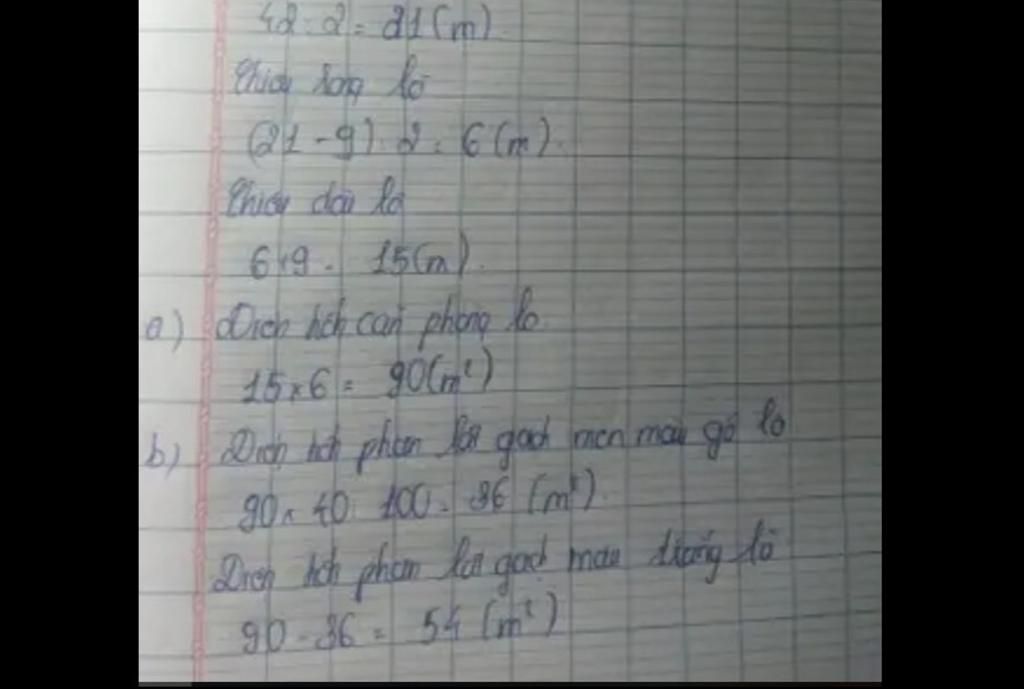 42 : 2 = 21 (m)
Chiều rộng là
(21 - 9) : 2 = 6 (m).
Chiều dài là
6 + 9 = 15 (m).
a) Diện tích căn phòng là
15 x 6 = 90 (m²)
b) Diện tích phần lát gạch men màu gỗ là
90 x 40 : 100 = 36 (m²).
Diện tích phần lát gạch màu trắng là
90 - 36 = 54 (m²)